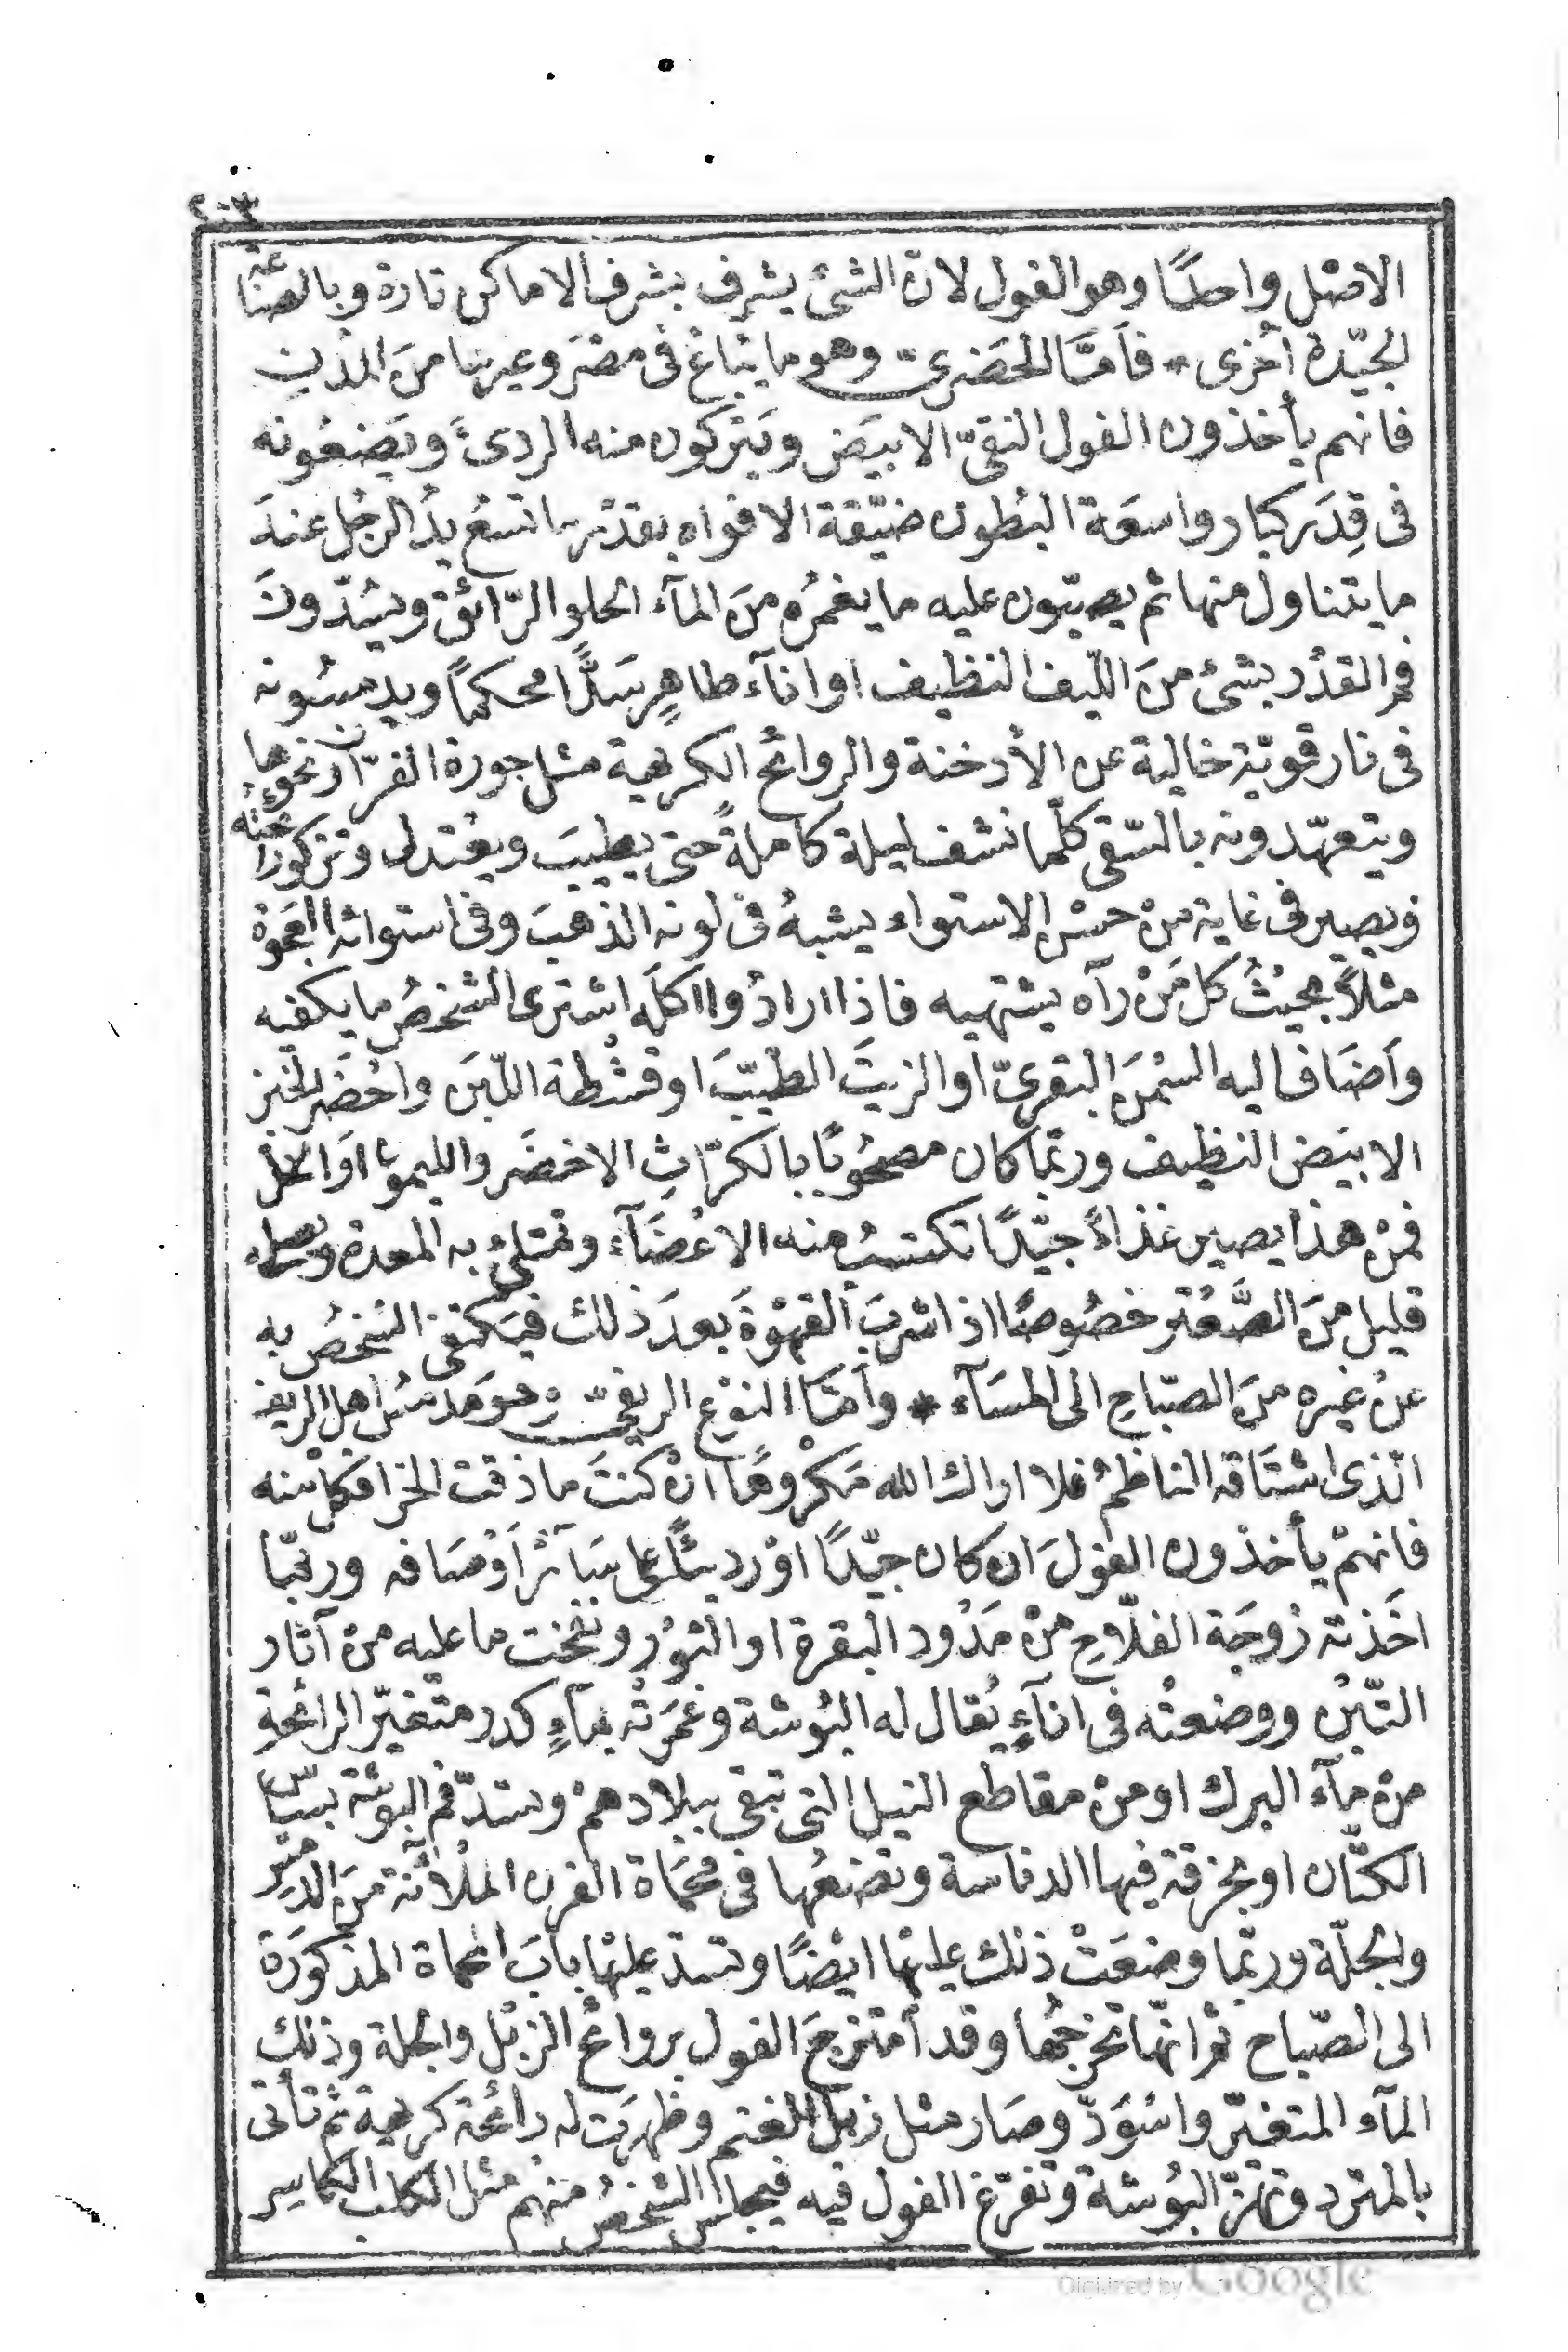 ٢٠٣
الاصْل واحدًا وهو الفول لانّ الشئ يشرف بشرف الاماكن تارة وبالصناعة
الجيّدة اُخرى * فاَمّا الحضرىّ وهو ما يُباع فى مصْرَ وغيرها منَ المدُن
فانهم يأخذون الفول النقىّ الابيَض ويَتركون منه الردئَ ويَضعُونه
فى قِدَر كبار واسعَة البُطون ضيّقة الافواه بقدْر ما تسَعُ يدُ الرجُل عندَ
ما يتناول منها ثم يصبّون عليه ما يغمرُه منَ المآء الحلو الرّائق ويشدّونَ
فم القدْر بشئ منَ اللّيف النظيف او اناَء طاهِر سَدًّا محكماً ويدمسُونه
فى نار قويّة خالية عن الأدخنة والروائح الكريهة مثل جورة الفرّان ونحوها
ويتعهّدونه بالسّقى كلّما نشف ليلة كاملةً حتى يطيبَ ويعْتدل وتزكو رائحتُه
ويصير فى غاية منْ حسْن الاستواء يشبهُ فى لونه الذهبَ وفى استوائه العَجوْة
مثلاً بحيْثُ كل مَنْ رآه يشتهيه فاذا ارادُوا اكلَه اشترى الشخصُ ما يكفيه
واَضَاف اليه السْمنَ البقرىّ او الزيتَ الطيّبَ او قشْطة اللّبَن واحْضَر الخبز
الابيَض النظيف وربّما كان مصحُوبًا بالكرّاثِ الاخضَر والليمون اوَ الخلّ
فمنْ هذا يصير غذاءً جيّدًا تكتسبُ منه الاعْضَآء وتمْتلئ به المعدة
قليل منَ الصَّعْتر خصُوصًا اذا شربَ القهْوَة بعدَ ذلك فيَكتفى الشخصُ به
عنْ غيره منَ الصّباح الى المسَآء * واَمّا النوْع الريفىّ وهوَ مدمسُ اهل الريف
الّذى اشتَاقه الناظمُ فلا اراك الله مَكْروهًا انْ كنتَ ما ذقت الخرا فكلْ منه
فانهمْ يأخذون الفولَ ان كان جيّدًا اوْ رديئًا على سَآئر اَوْصَافه وربّما
اخَذتْه زوجَة الفلّاحِ منْ مَدْود البقرة او الثوْر ونفخت ما عليه منْ آثار
التّبْن ووضعتْه فى اناَءٍ يُقال له البُوشة وغمَرتْه بمآءٍ كدر متغيّر الرائحةِ
منْ مآء البرك او منْ مقاطع النيل التى تبقى ببلادهمْ وتسدّ فم البوشة بسَاس
الكتّان او بخرقة فيها الدناسة وتضعُها فى مَحْمَاة الفرن الملْآنة منَ الدمْس
والجلّة وربّما وضعَتْ ذلك عليْها ايْضًا وتسدّ عليْها بابَ المحماة المذكورَة
الى الصّباح ثمْ انّها تخرجُها وقد اُمتزجَ الفول بروائح الزبْل والجلة وذلك
المآء المتغيّر واسْوَدّ وصَار مثل زبْل الغنم وظهرَت له رائحة كريهة ثم تأتى
بالمتْرد وتهزّ البُوشة وتفرّغ الفول فيه فيجلس الشخصُ منهم مثل الكلب الكاسِر